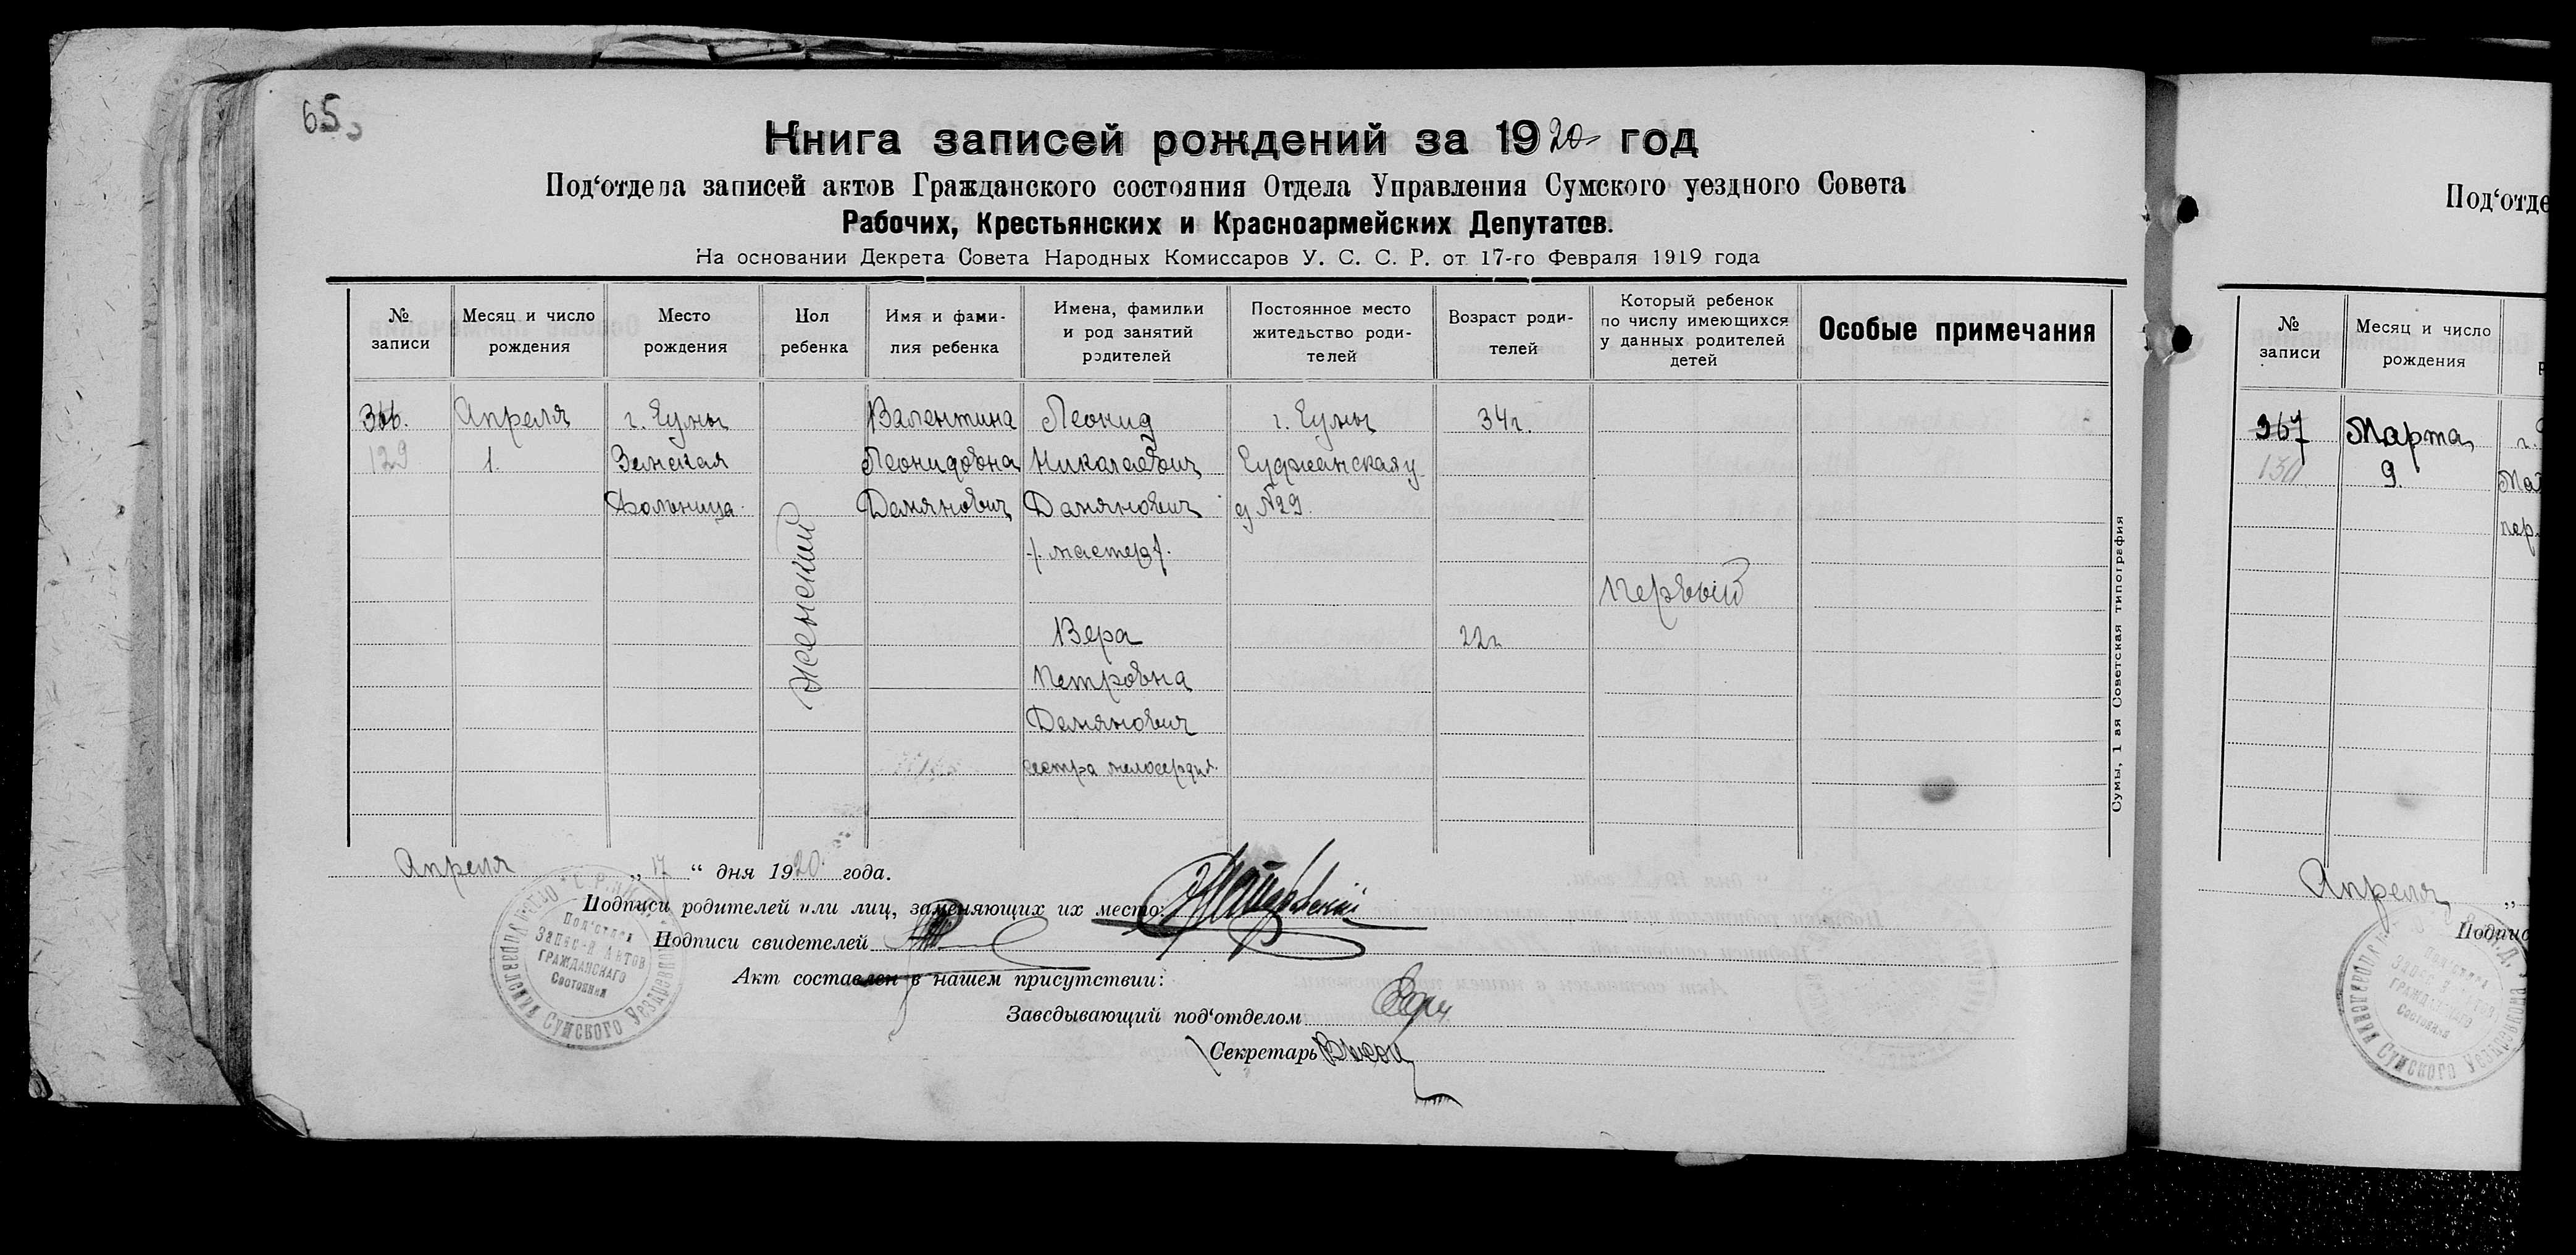 65
Книга записей рождений за 1920 год
Под‘отдела записей актов Гражданского состояния Отдела Управления Сумского уездного Совета
Рабочих, Крестьянских и Красноармейских Депутатов.
На основании Декрета Совета Народных Комиссаров У. С. С. Р. от 17-го Февраля 1919 года
№ записи
Месяц и число рождения
Место рождения
Пол ребенка
Имя и фами-
лия ребенка
Имена, фамилии
и род занятий
родителей
Постоянное место
жительство роди-
телей
Возраст роди-
телей
Который ребенок
по числу имеющихся
у данных родителей
детей
Особые примечания
366.
129
Апреля
1.
г. Сумы
Земская
больница.
женский
Валентина
Леонидовна
Демянович
Леонид
Николаевич
Демянович
/. мастер /.
Вера
Петровна
Демянович
сестра милосердия.
г. Сумы
Суджанская у
д №29.
34г.
22г
Первый
Сумы, 1 ая Советская типография
Апреля „ 17 “ дня 1920 года.
Подписи родителей или лиц, заменяющих их место:
Подписи свидетелей
Акт составлен в нашем присутствии:
Заведывающий под‘отделом
Секретарь
Под‘отдел
Записей Актов
ГРАЖДАНСКАГО
Состояния
Управления Сумского Уезд
Под‘отде
№ записи
Месяц и число рождения
367
130
Марта
9.
г.
пер.
Апреля „
Подпис
ГРАЖДАНСКАГО
Состояния
Сумского